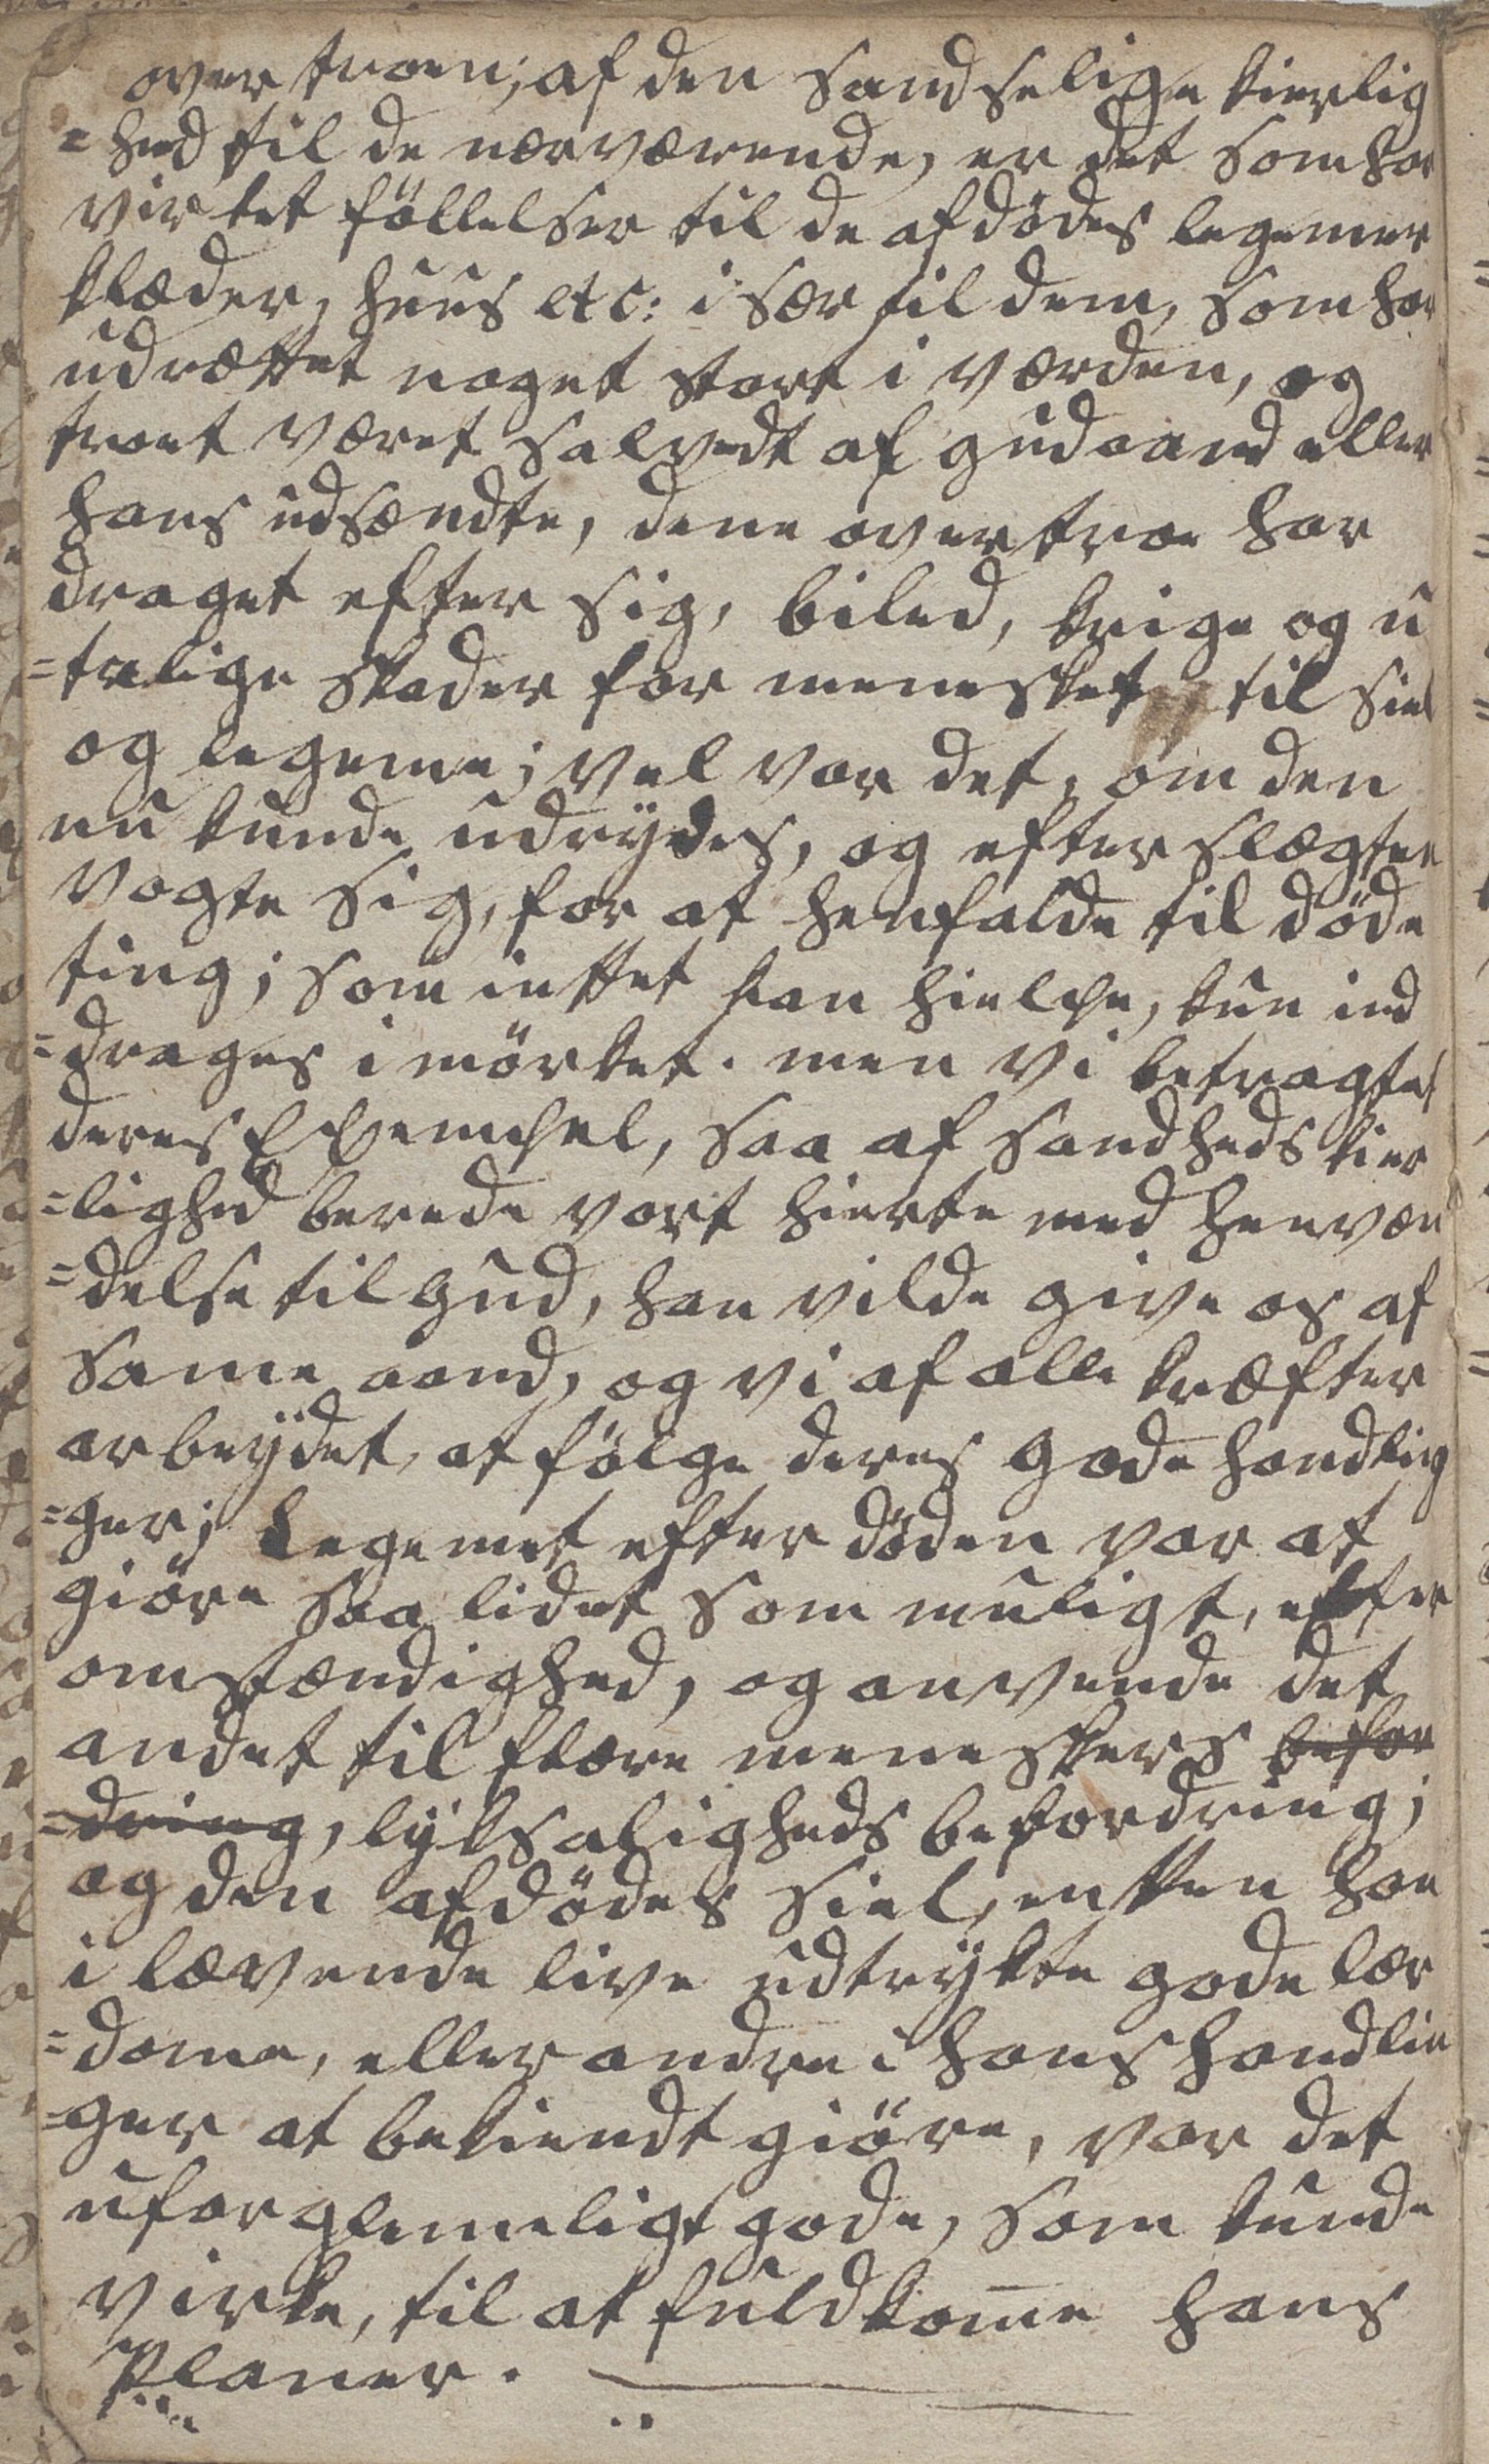 overtroen; af den sandselige kierlig
=hed til de nærværende, er det som har
virket föllelser til de afdödes legemer
klæder, huus etc: i sær til dem, som har
udrættet noget stort i værden, og
troet været salvedt af gudaand eller
hans udsændte, dene overtroe har
draget efter sig, biled, krige og u
=talige skader for menesket til siel
og legeme; vel var det, om den
nu kunde udrydes, og efter slægten
vogte sig, for at henfalde til döde
ting; som inttet kan hielpe, kun ind
=drages i mörket. men vi betragter
deres Exempel, saa af sandheds kier
=lighed berede vort hierte med henven
=delse til gud, han vilde give os af
same aand, og vi af alle kræfter
arbeydet, at fölge deres gode handlin
=ger; Legemet efter döden var at
giöre saa lidet som muligt, efter
omstændighed, og anvende det
andet til flære meneskers befor
=dring, lyksaligheds befordring;
og den afdödes siel, entten han
i lævende live udtrykte gode lær
=dome, eller andre i hans handlin
=ger at bekiendt giöre, var det
uforglemeligt gode, som kunde
virke, til at fuldkom̄e hans
Planer.